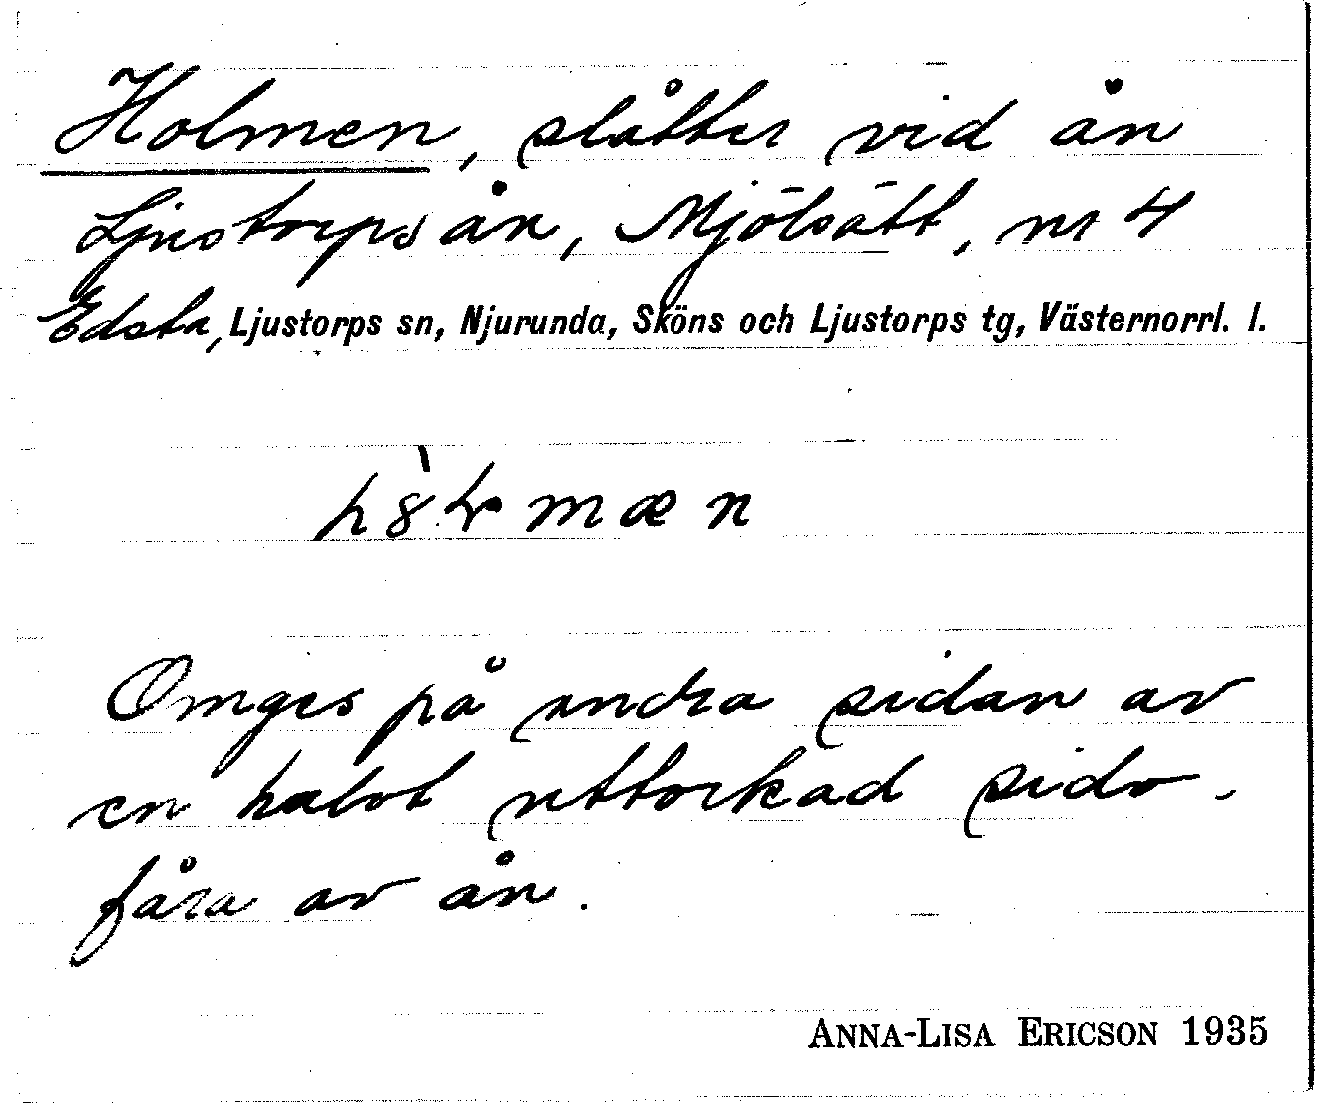 Holmen, slåtter vid ån
Ljustorpsån, Mjölsätt, nr 4
Edsta, Ljustorps sn, Njurunda, Sköns och Ljustorps tg, Västernorrl. l.
Omges på andra sidan av
en halvt uttorkad sido-
fåra av ån.
ANNA-LISA ERICSON 1935